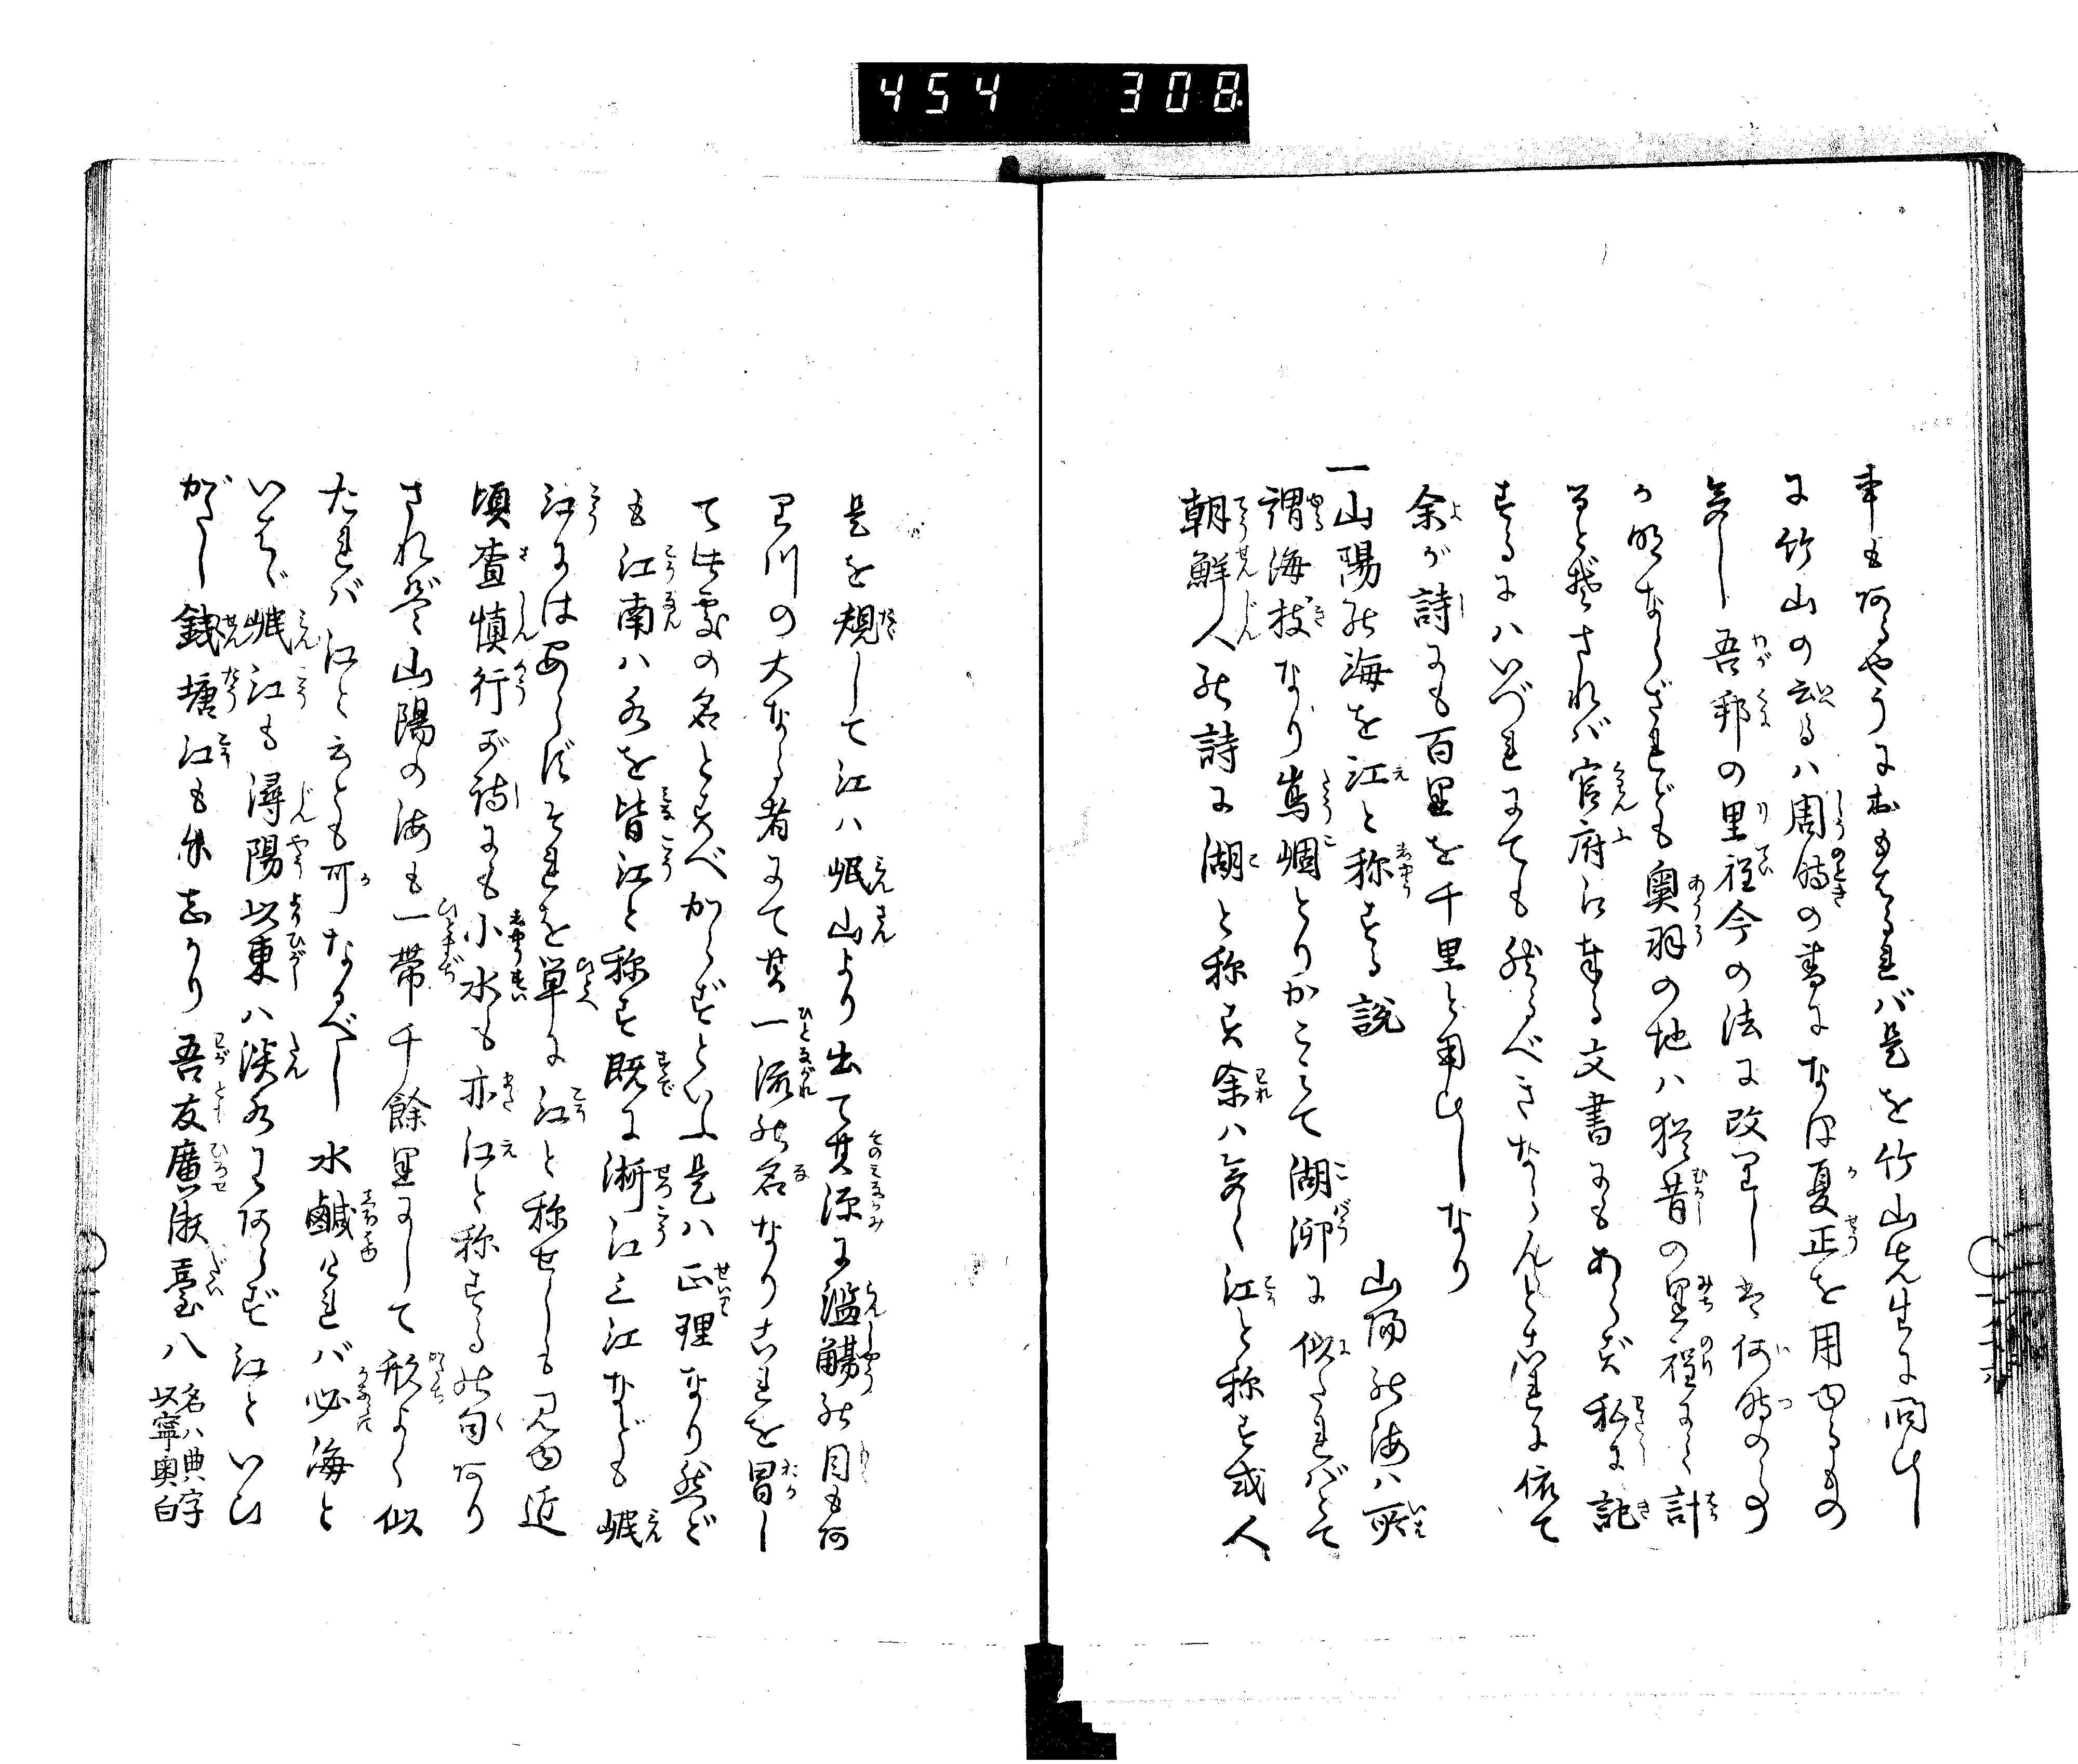 454 308
事もあるやうにおもはるれバ是を竹山先生に問ひし
に竹山の云るハ周時の書になほ夏正を用ゆるもの
多し吾邦の里程今の法に改りしは何時のころ
か明ならざれども奥羽の地ハ猶昔の里程にて計
ると。されバ官府に奉る文書にもあらず私に記
するにハいづれにても然るべきならんと。これに依て
余が詩にも百里を千里と用ひしなり
一山陽の海を江と称する説 山陽の海ハ所
謂海技なり嶌嶼とりかこみて湖泖に似たればとて
朝鮮人の詩に湖と称す余ハ多く江と称す或人
是を規して江ハ岷山より出て其源に濫觴の目もあ
り川の大なる者にて其一流の名なりこれを冒し
て此處の名とすべからずといふ是ハ正理なり然ど
も江南ハ水を皆江と称す既に淅江三江なども岷
江にはあらずそれを単に江と称せしも見ゆ近
頃査慎行が詩にも小水も亦江と称するの句あり
されバ山陽の海も一帯千餘里にして形よく似
たれバ江と云とも可なるべし水鹹けれバ必海と
いはゞ岷江も潯陽以東ハ淡水にあらず江といひ
がたし銭塘江も朱しかり吾友廣瀬臺八 名ハ典字
以寧奥白